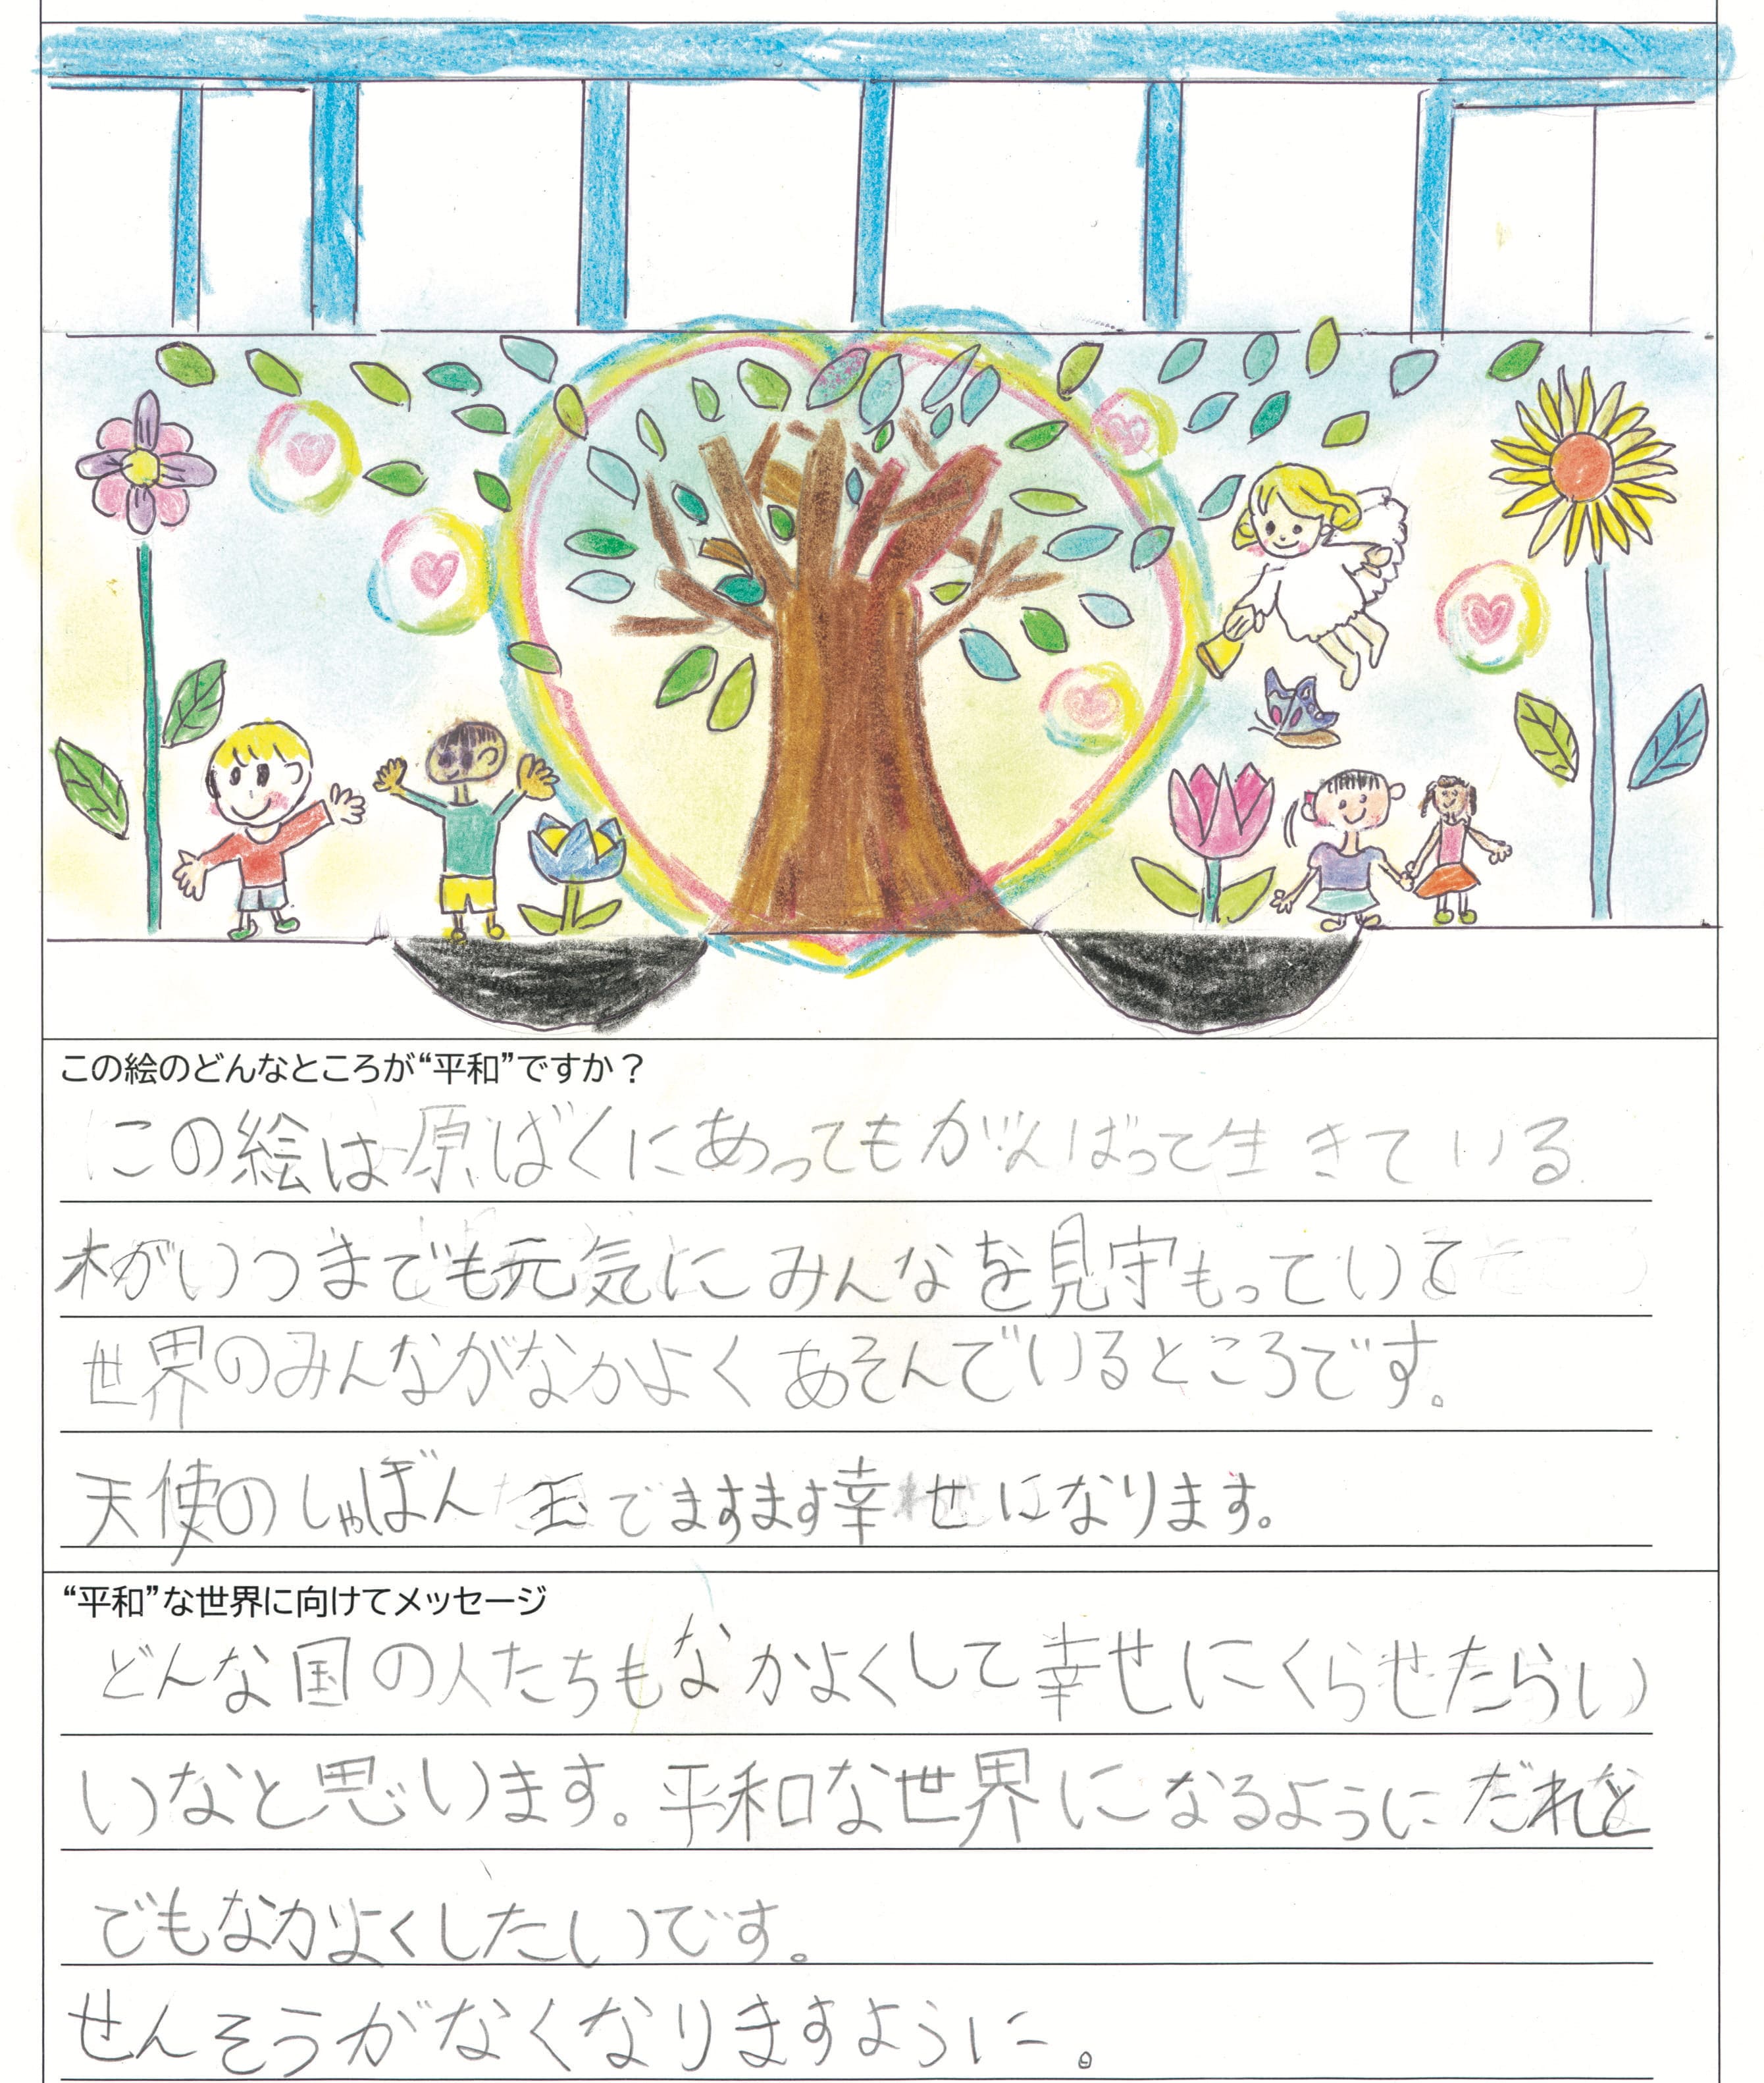 この絵のどんなところが“平和”ですか？
この絵は原ばくにあってもがんばって生きている
木がいつまでも元気にみんなを見守もっていて
世界のみんながなかよくあそんでいるところです。
天使のしゃぼん玉でますます幸せになります。
“平和”な世界に向けてメッセージ
どんな国の人たちもなかよくして幸せにくらせたらい
いなと思います。平和な世界になるようにだれと
でもなかよくしたいです。
せんそうがなくなりますように。